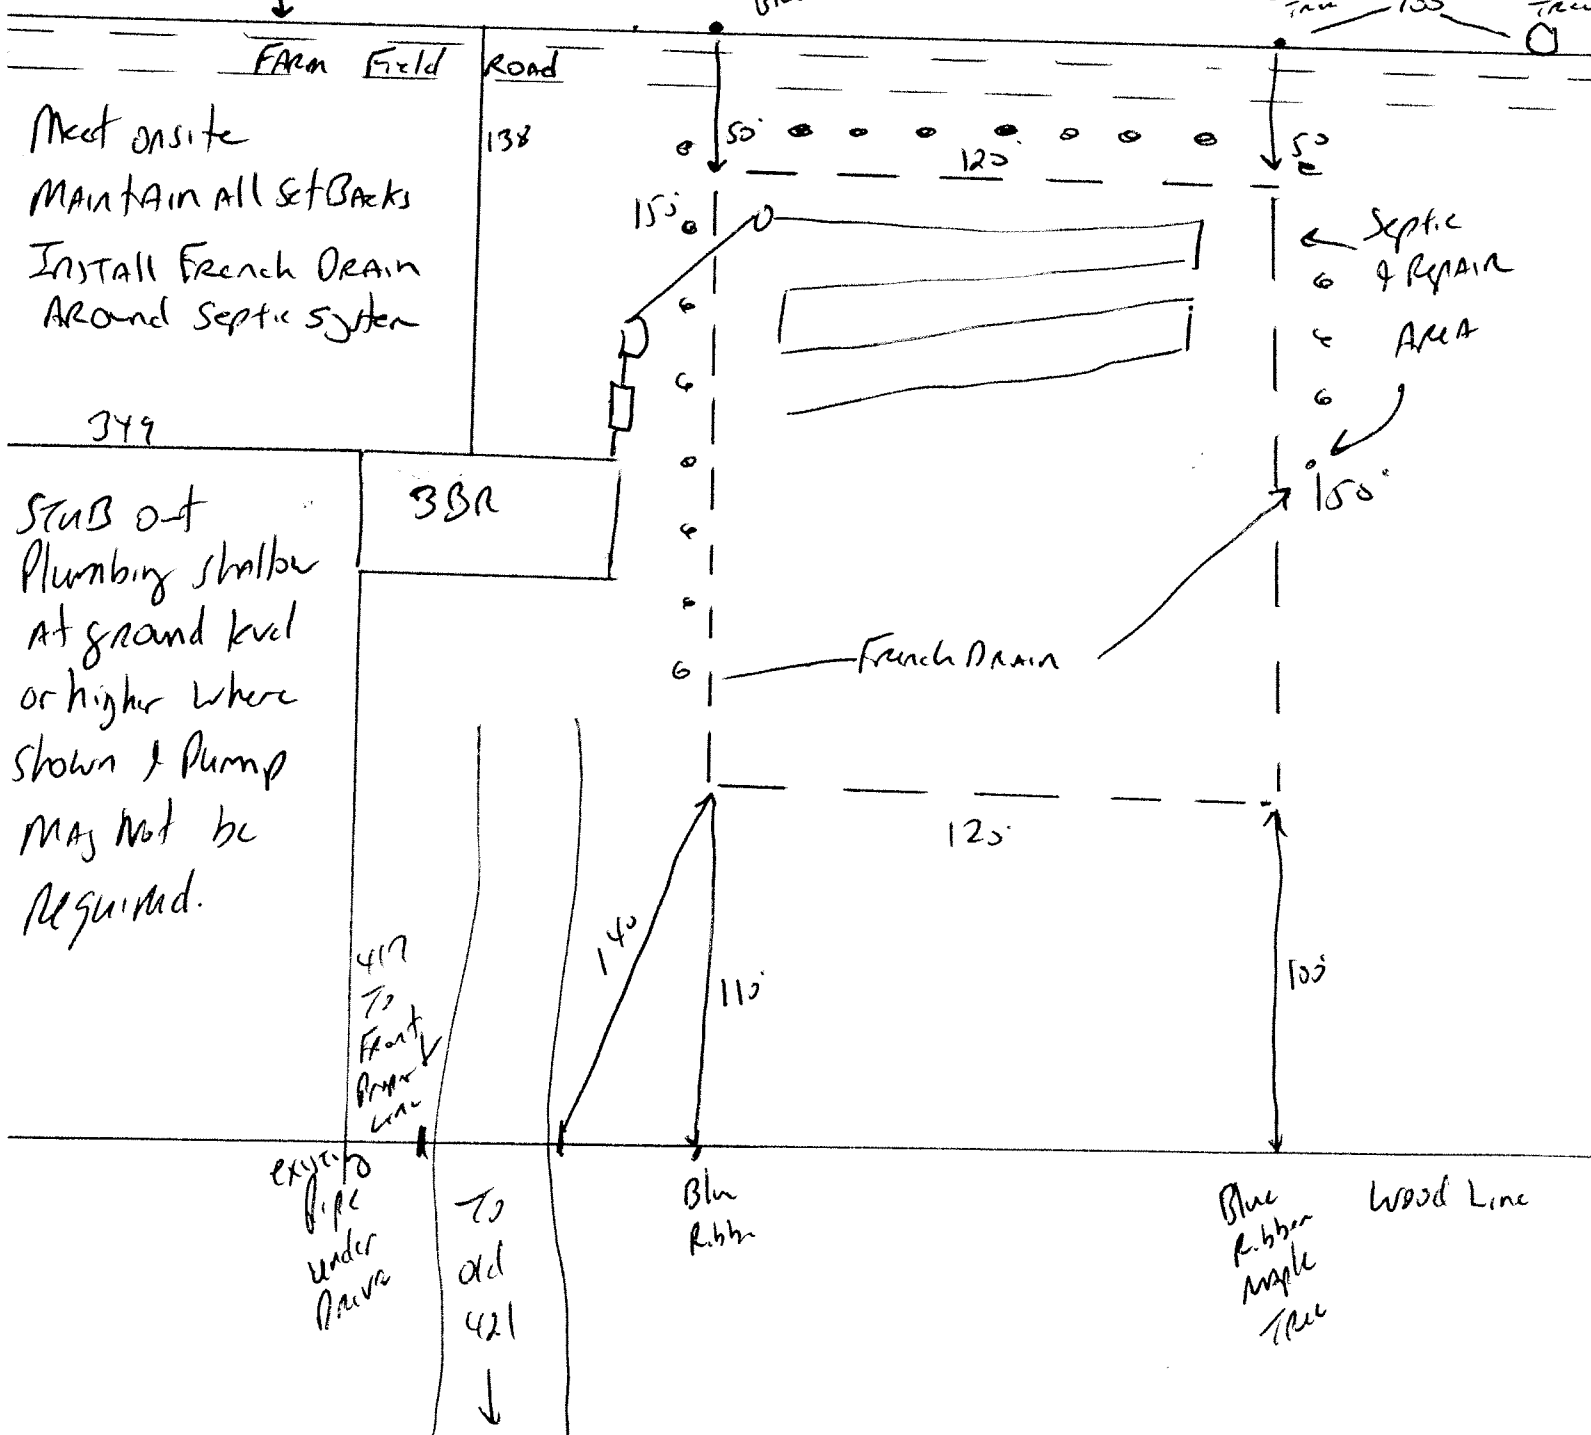 Tree 100 Tree
FARM Field ROAD
Meet onsite
MAINTAIN All SetBAcks
INSTALL French DRAIN
AROund Septic System
138
50'
120'
50
150'
Septic
& RepAIR
AREA
150'
349
3BR
STUB out
Plumbing shallow
At ground level
or higher where
shown & Pump
MAy Not be
Required.
French DRAIN
120'
140
110'
100'
417
To
Front
Line
existing
Pipe
under
Drive
To
old
421
Blu
Ribbn
Blue
Ribbon
Maple
TRee
Wood Line